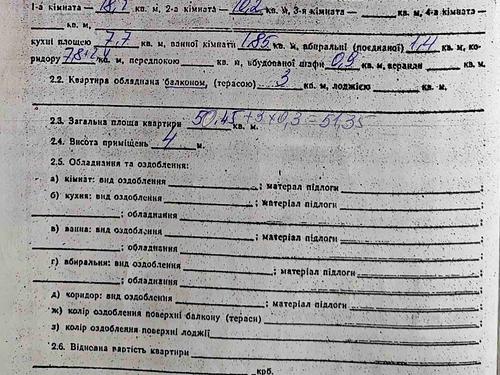 1-а кімната — 18,1 кв. м, 2-а кімната — 10,2 кв. м, 3-я кімната — кв. м, 4-а кімната —
кв. м,
кухні площею 7,7 кв. м, ванної кімнати 1,85 кв. м, вбиральні (поєднаної) 1,4 кв. м, ко-
ридору 7,8+2,4 кв. м, передпокою кв. м, вбудованої шафи 0,9 кв. м, веранди кв. м.
2.2. Квартира обладнана балконом, (терасою) 3 кв. м, лоджією кв. м.
2.3. Загальна площа квартири 50,45+3×0,3=51,35 кв. м.
2.4. Висота приміщень 4 м.
2.5. Обладнання та оздоблення:
а) кімнат: вид оздоблення ; матерал підлоги
б) кухня: вид оздоблення ; матеріал підлоги
; обладнання
в) ванна: вид оздоблення ; матеріал підлоги
; обладнання
г) вбиральня: вид оздоблення ; матеріал підлоги
; обладнання
д) коридор: вид оздоблення ; матеріал підлоги
ж) колір оздоблення поверхні балкону (тераси)
з) колір оздоблення поверхні лоджії
2.6. Відновна вартість квартири
крб.